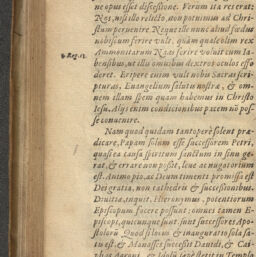 ne opus esset discessione. Verum ita res erat:
Nos, nisi illo relicto, non potuimus ad Chri-
stum pervenire. Neque ille nunc aliud fœdus
nobiscum ferire vult, quàm quale olim rex
1 Reg. 11. Ammonitarum Nâas ferire voluit cum Ia-
bensibus, ut illis omnibus dextros oculos effo
deret. Eripere enim vult nobis Sacras scri-
pturas, Euangelium salutis nostræ, & om-
nem illam spem quam habemus in Christo
Iesu. Aliis enim condicionibus pacem nō pos-
se convenire.
Nam quod quidam tantoperè solent præ-
dicare, Papam solum esse successorem Petri,
quasi ea causa spiritum sanctum in sinu ge-
rat, & errare non posset, leve ac nugatorium
est. Animo pio, ac Deum timenti promissa est
Dei gratia, non cathedris & successionibus.
Divitiæ, inquit Hieronymus, potentiorem
Episcopum facere possunt: omnes tamen E-
piscopi, quicunque sunt, sunt successores Apo-
stolorū. Quod si locus & inauguratio sola sa-
tis est, & Manasses successit Davidi, & Cai-
phas Aaroni, & Idolū sæpè stetit in Templo